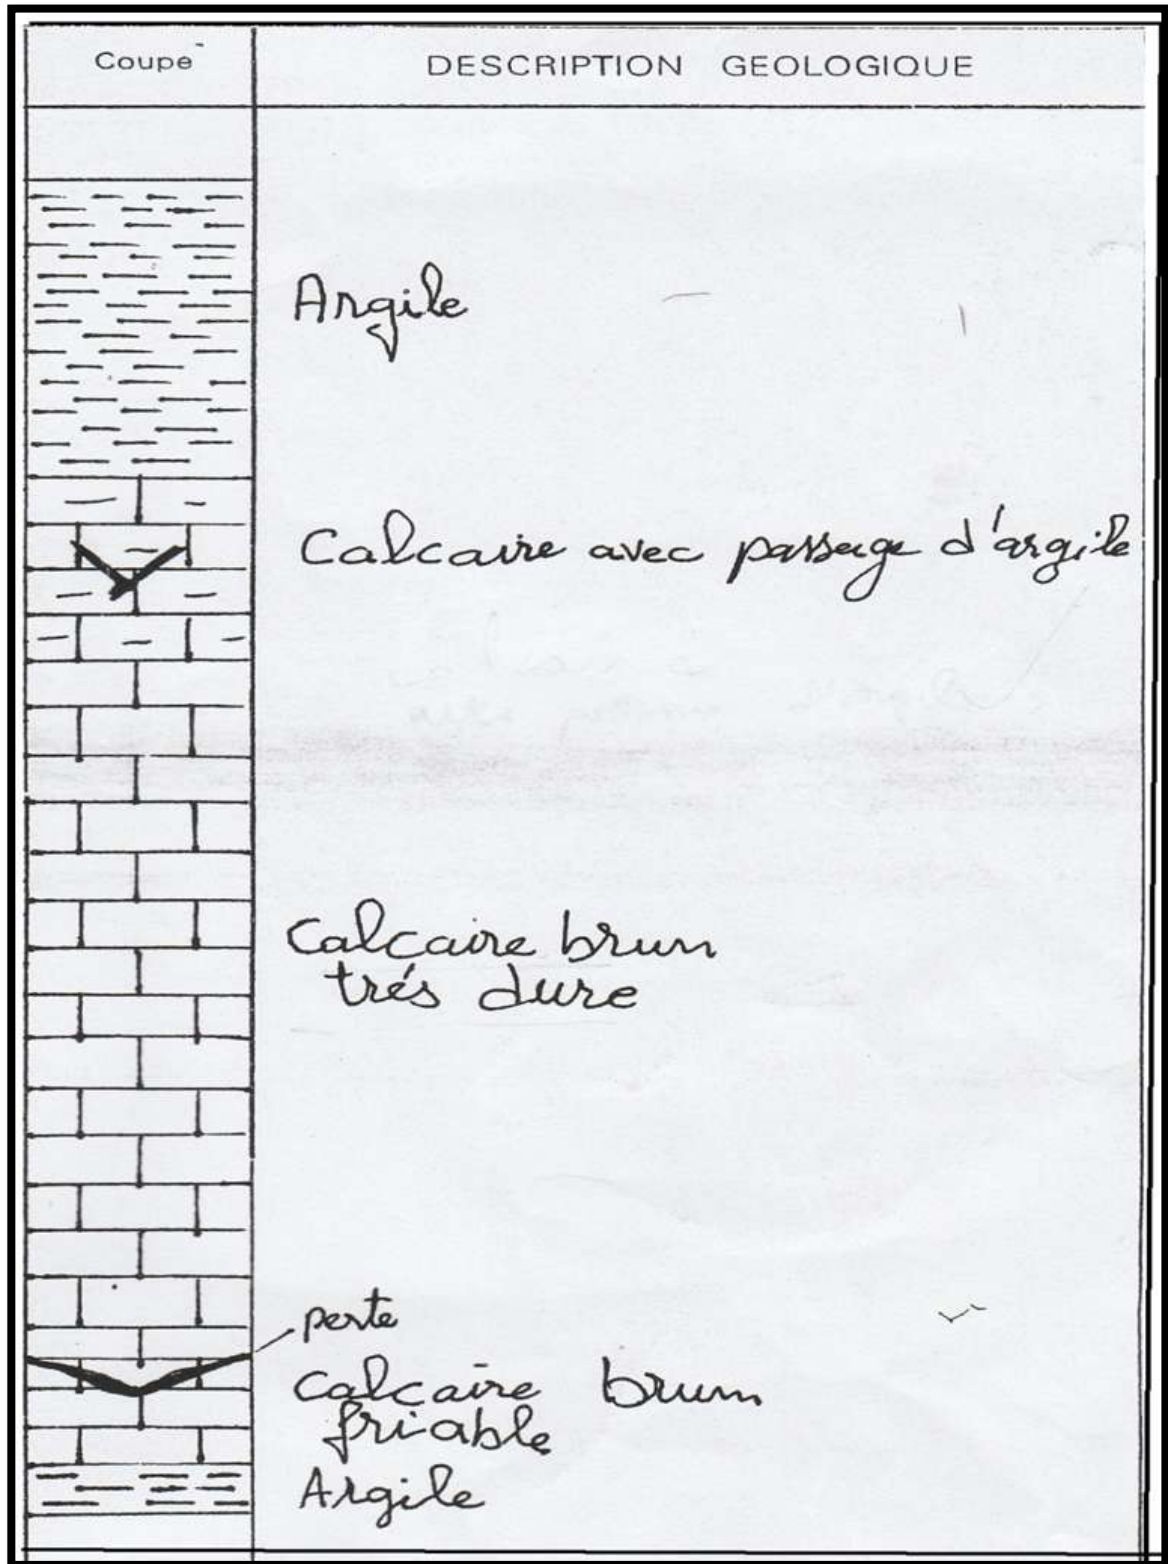 Coupe
DESCRIPTION GEOLOGIQUE
Argile
Calcaire avec passage d'argile
Calcaire brun
trés dure
perte
Calcaire brum
friable
Argile